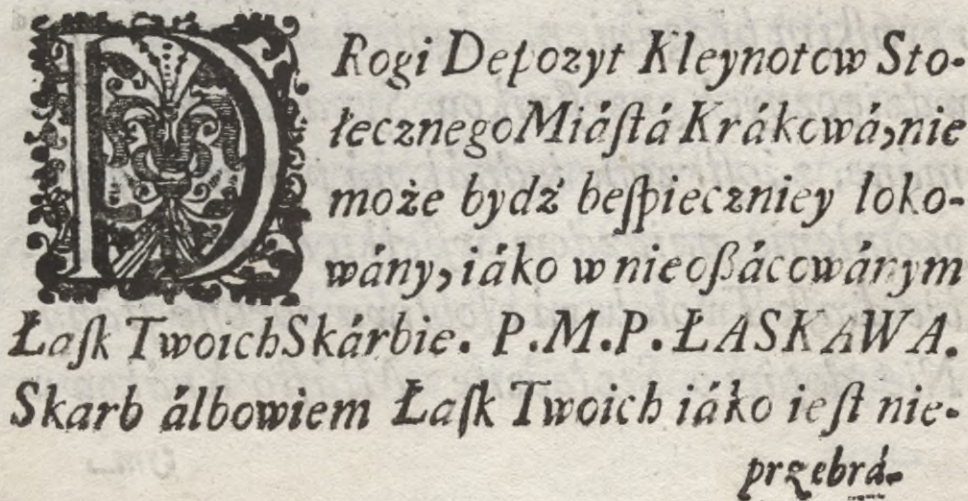 DRogi Depozyt Kleynotow Sto-
łecznego Miáſtá Krákowá, nie
może bydź beſpieczniey loko-
wány, iáko w nieoßácowánym
Łaſk Twoich Skárbie. P.M.P. ŁASKAWA.
Skarb álbowiem Łaſk Twoich iáko ieſt nie-
przebrá-